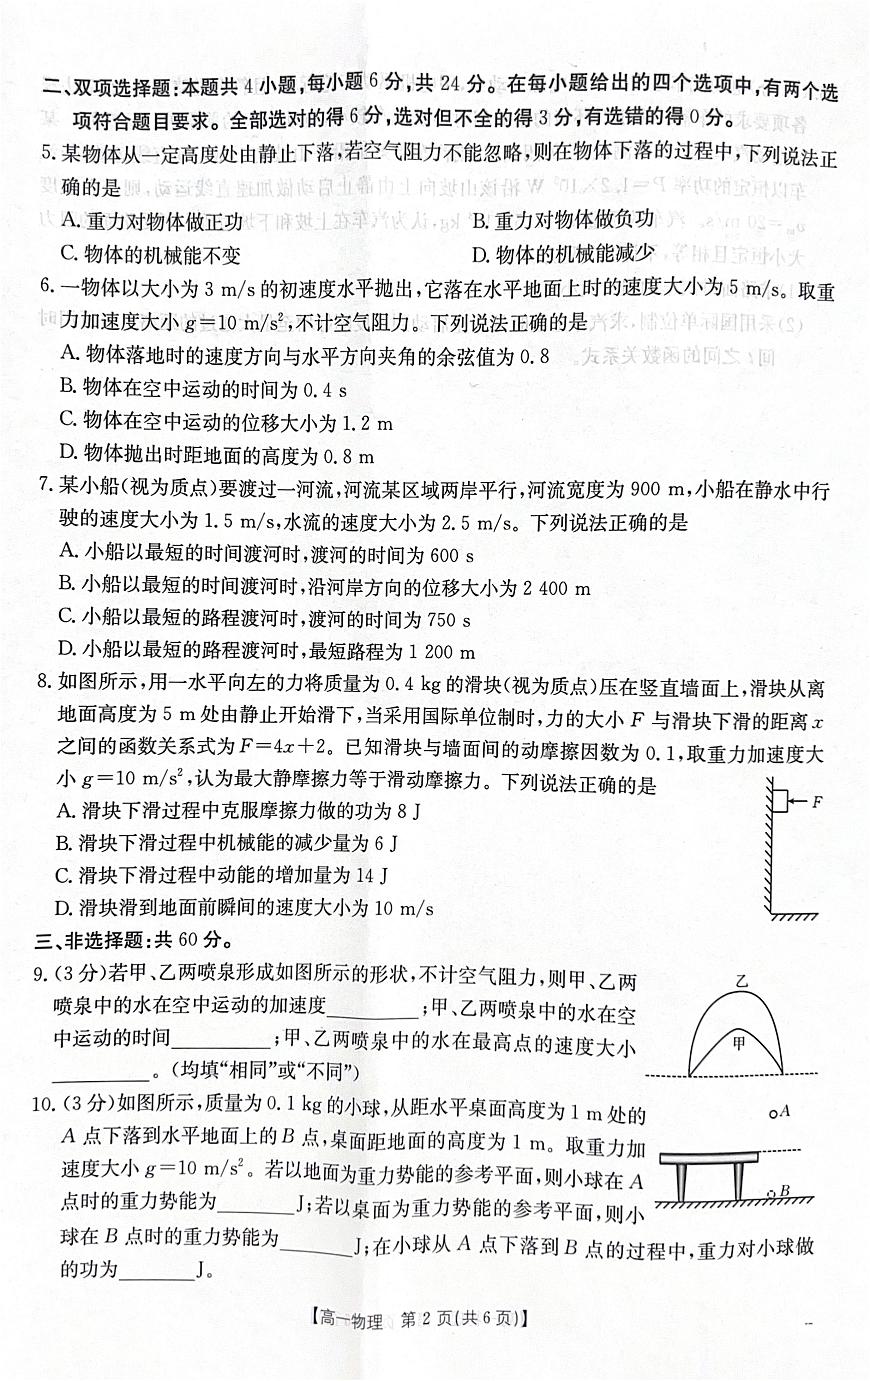 二、双项选择题:本题共4小题,每小题6分,共24分。在每小题给出的四个选项中,有两个选
项符合题目要求。全部选对的得6分,选对但不全的得3分,有选错的得0分。
5. 某物体从一定高度处由静止下落,若空气阻力不能忽略,则在物体下落的过程中,下列说法正
确的是
A. 重力对物体做正功 B. 重力对物体做负功
C. 物体的机械能不变 D. 物体的机械能减少
6. 一物体以大小为3 m/s的初速度水平抛出,它落在水平地面上时的速度大小为5 m/s。取重
力加速度大小g=10 m/s²,不计空气阻力。下列说法正确的是
A. 物体落地时的速度方向与水平方向夹角的余弦值为0.8
B. 物体在空中运动的时间为0.4 s
C. 物体在空中运动的位移大小为1.2 m
D. 物体抛出时距地面的高度为0.8 m
7. 某小船(视为质点)要渡过一河流,河流某区域两岸平行,河流宽度为900 m,小船在静水中行
驶的速度大小为1.5 m/s,水流的速度大小为2.5 m/s。下列说法正确的是
A. 小船以最短的时间渡河时,渡河的时间为600 s
B. 小船以最短的时间渡河时,沿河岸方向的位移大小为2 400 m
C. 小船以最短的路程渡河时,渡河的时间为750 s
D. 小船以最短的路程渡河时,最短路程为1 200 m
8. 如图所示,用一水平向左的力将质量为0.4 kg的滑块(视为质点)压在竖直墙面上,滑块从离
地面高度为5 m处由静止开始滑下,当采用国际单位制时,力的大小F与滑块下滑的距离x
之间的函数关系式为F=4x+2。已知滑块与墙面间的动摩擦因数为0.1,取重力加速度大
小g=10 m/s²,认为最大静摩擦力等于滑动摩擦力。下列说法正确的是
A. 滑块下滑过程中克服摩擦力做的功为8 J
F
B. 滑块下滑过程中机械能的减少量为6 J
C. 滑块下滑过程中动能的增加量为14 J
D. 滑块滑到地面前瞬间的速度大小为10 m/s
三、非选择题:共60分。
9. (3分)若甲、乙两喷泉形成如图所示的形状,不计空气阻力,则甲、乙两
喷泉中的水在空中运动的加速度________;甲、乙两喷泉中的水在空
中运动的时间________;甲、乙两喷泉中的水在最高点的速度大小
________。(均填“相同”或“不同”)
乙
甲
10. (3分)如图所示,质量为0.1 kg的小球,从距水平桌面高度为1 m处的
A点下落到水平地面上的B点,桌面距地面的高度为1 m。取重力加
速度大小g=10 m/s²。若以地面为重力势能的参考平面,则小球在A
点时的重力势能为________J;若以桌面为重力势能的参考平面,则小
球在B点时的重力势能为________J;在小球从A点下落到B点的过程中,重力对小球做
的功为________J。
A
B
【高一物理 第2页(共6页)】